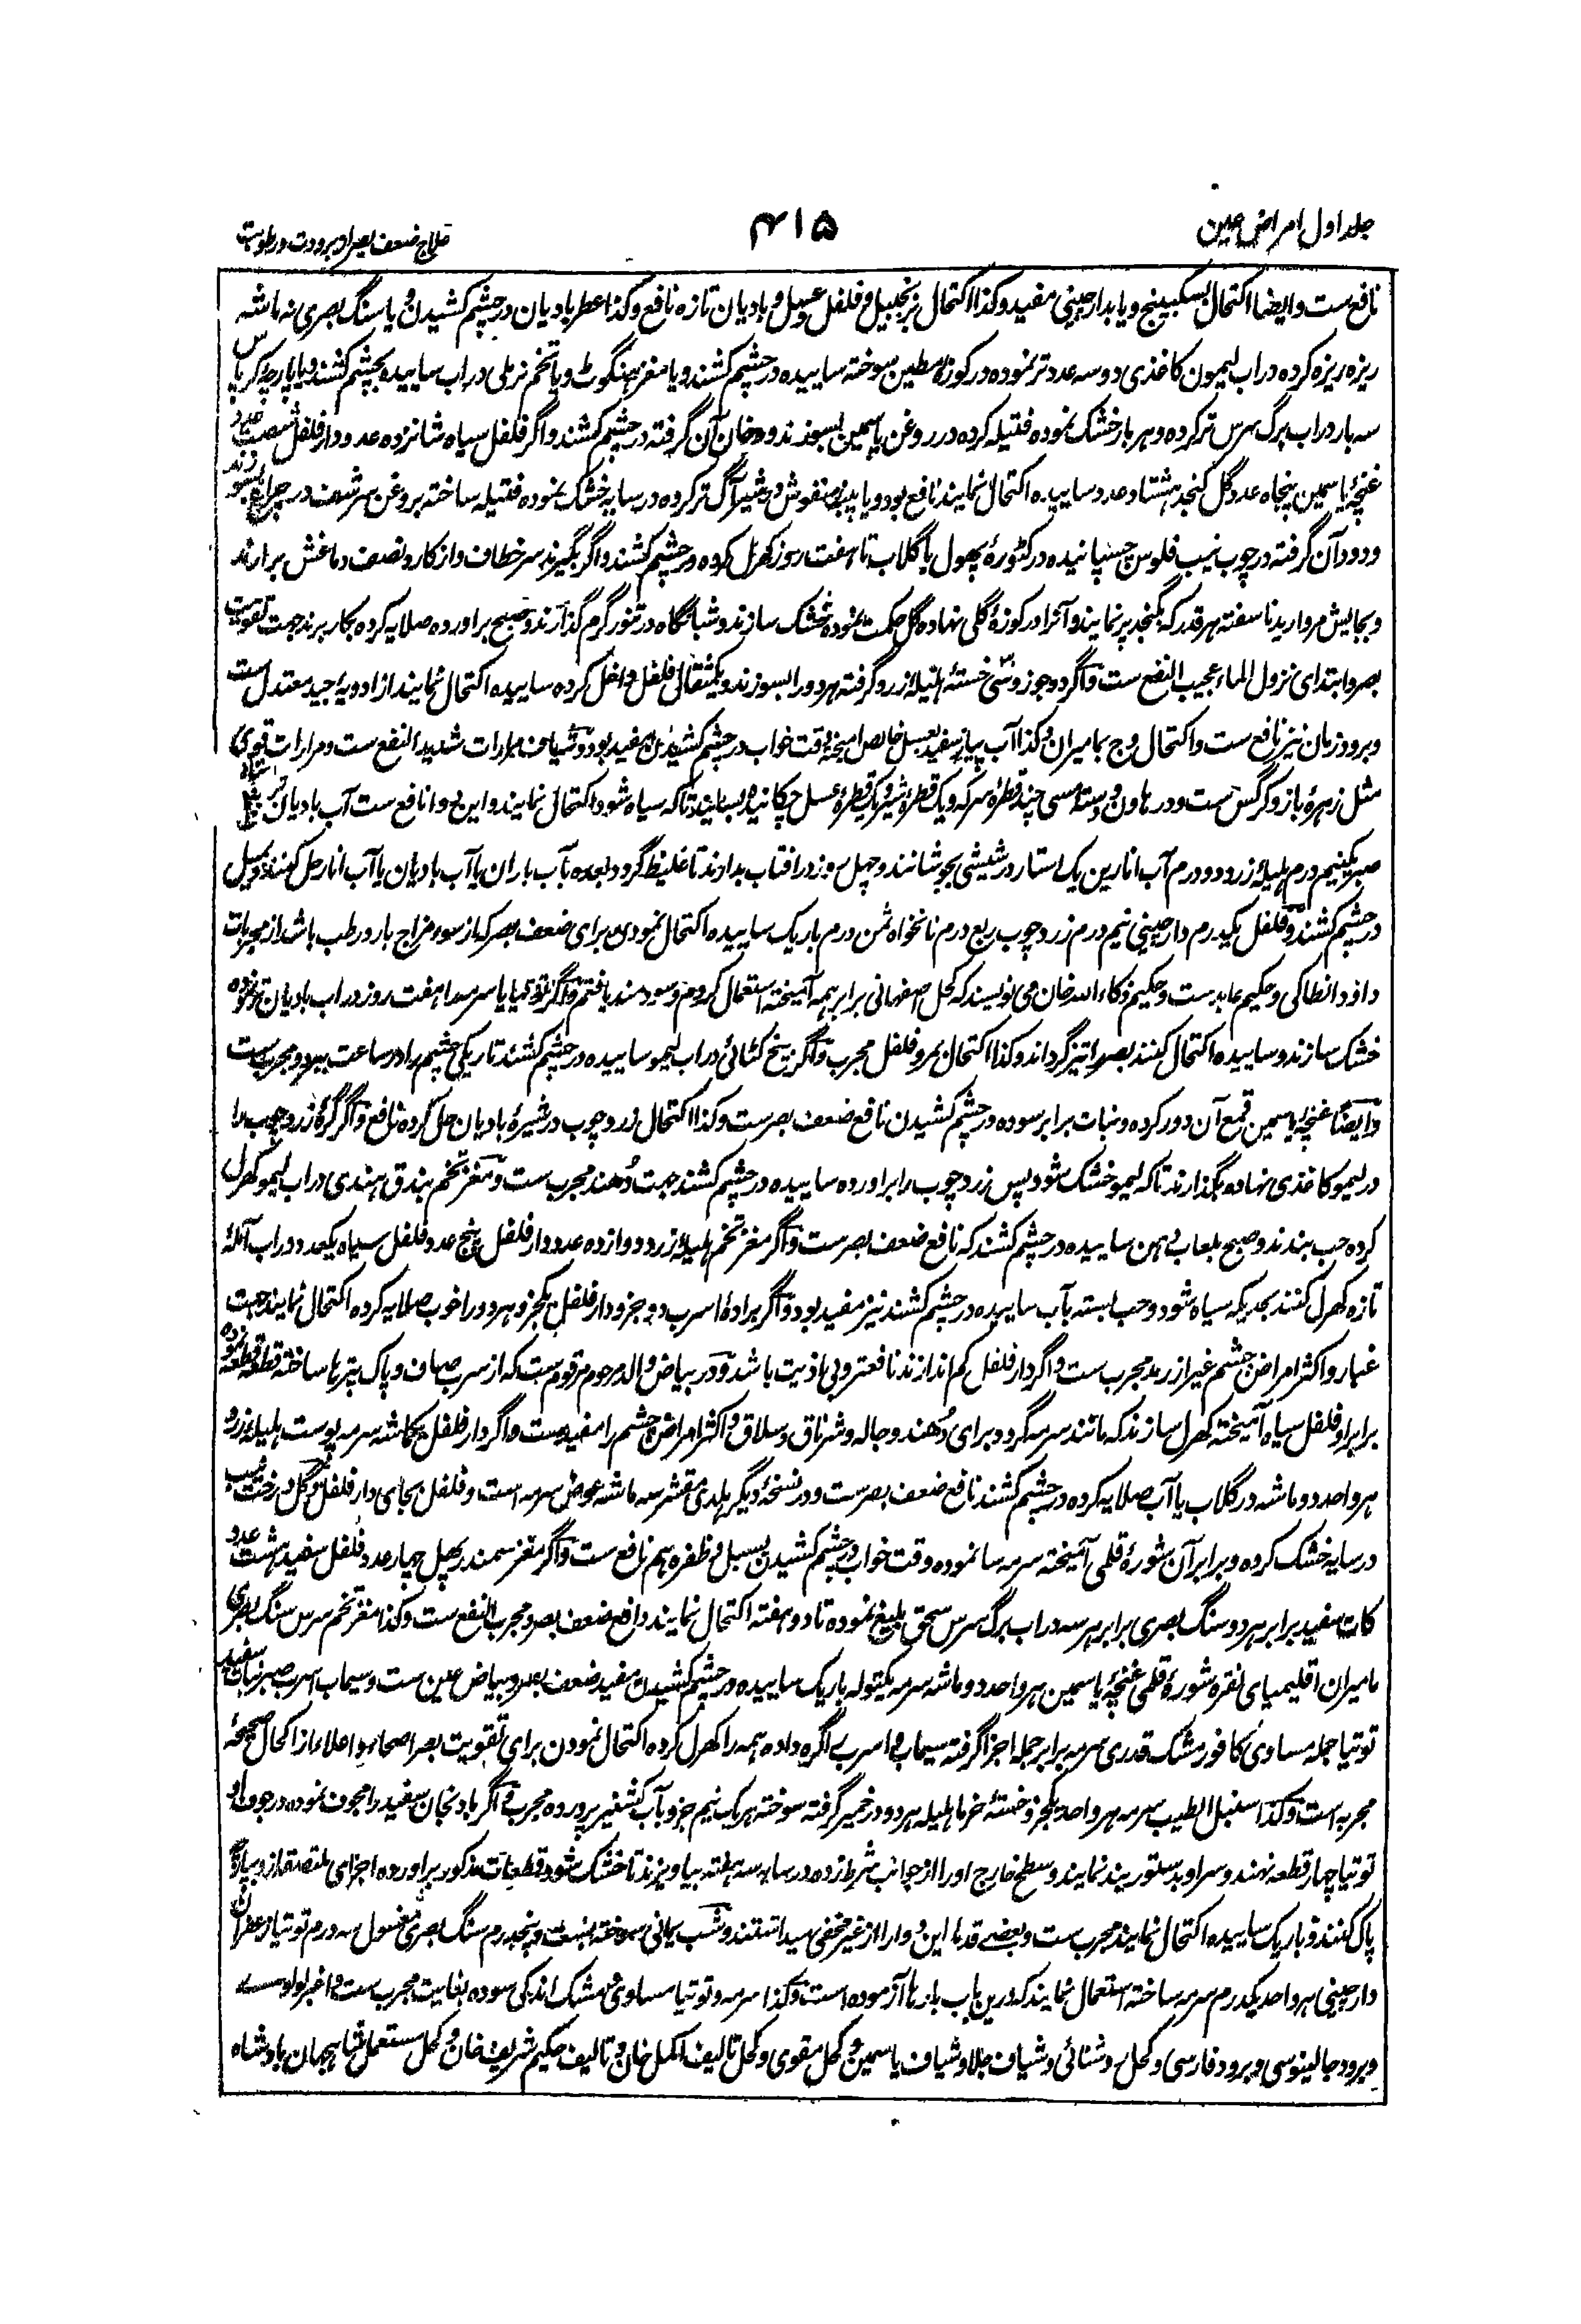 جلد اول امراض عین
۴۱۵
علاج ضعف بصر از برودت و رطوبت
نافع ست و ایضا اکتحال بسکبینج و یا بدارچینی مفید و کذا اکتحال زنجبیل و فلفل و عسل و بادیان تازه نافع و کذا عطر بادیان در چشم کشیدن و یا سنگ بصری نه ماشه
ریزه ریزه کرده در اب لیمون کاغذی دو سه عدد تر نموده در کوزه مطین سوخته ساییده در چشم کشند و یا مغز هنگوٹ و یا تخم نرملی در اب ساییده بچشم کشند و یا پارچه کرپاس
سه بار در اب برگ سرس تر کرده و هر بار خشک نموده فتیله کرده در روغن یاسمین بسوزند و دخان آن گرفته در چشم کشند و اگر فلفل سیاه شانزده عدد دار فلفل شصت عدد
غنچهٔ یاسمین پنجاه عدد گل کنجد هشتاد عدد ساییده اکتحال نمایند نافع بود و یا پنبه منفوش در شیر آگ تر کرده در سایه خشک نموده فتیله ساخته بروغن سرشف در چراغ بسوزند
و دود آن گرفته در چوب نیب فلوس چسپانیده در کٹورهٔ پھول با گلاب تا هفت روز کھرل کرده در چشم کشند و اگر بگیرند سر خطاف و از کارد نصف دماغش برارند
و بجایش مروارید ناسفته هر قدر که بگنجد پر نمایند و آنرا در کوزهٔ گلی نهاده گل حکمت نموده خشک سازند و شبانگاه در تنور گرم گذارند و صبح براورده صلایه کرده بکار برند جهت تقویت
بصر و ابتدای نزول الماء عجیب النفع ست و اگر دو جوز و سی خستهٔ هلیلهٔ زرد گرفته هر دو را بسوزند و یکمثقال فلفل داخل کرده ساییده اکتحال نمایند از ادویهٔ جید معتدل ست
و برود رمان نیز نافع ست و اکتحال وج بمامیران و کذا آب پیاز سفید بعسل خالص امیخته وقت خواب در چشم کشیدن مفید بود و شیاف مرارات شدید النفع ست و مرارات قوی
مثل زهرهٔ باز و کرگس ست و در هاون و دستهٔ مسی چند قطرهٔ سرکه و یک قطرهٔ شیر و یک قطرهٔ عسل چکانیده بسایند تا که سیاه شود اکتحال نمایند و این دوا نافع ست آب بادیان
صبر یکنیم درم هلیلهٔ زرد دو درم آب انارین یک استار در شیشی بجوشانند و چهل روز در افتاب بدارند تا غلیظ گردد بعده بآب باران یا آب بادیان یا آب انار حل کنند و بمیل
در چشم کشند و فلفل یکدرم دارچینی نیم درم زرد چوب ربع درم نانخواه ثمن درم باریک ساییده اکتحال نمودن برای ضعف بصر که از سوء مزاج بارد رطب باشد از مجربات
داؤد انطاکی و حکیم عابد ست و حکیم ذکاء الله خان می نویسند که کحل اصفهانی برابر همه آمیخته استعمال کردم و سودمند یافتم و اگر توتیا یا سرمه را هفت روز در اب بادیان تر نموده
خشک سازند و ساییده اکتحال کنند بصر را تیز گرداند و کذا اکتحال بمر و فلفل مجرب و اگر بیخ کٹائی در اب لیمو ساییده در چشم کشند تاریکی چشم را در ساعت ببرد و مجرب ست
و ایضا غنچهٔ یاسمین قمع آن دور کرده و نبات برابر سوده در چشم کشیدن نافع ضعف بصر ست و کذا اکتحال زرد چوب در شیرهٔ بادیان حل کرده نافع و اگر گرهٔ زرد چوب را
در لیمو کاغذی نهاده بگذارند تا که لیمو خشک شود پس زرد چوب را براورده ساییده در چشم کشند جهت دهند مجرب ست و مغز تخم بندق هندی در اب لیمو کھرل
کرده حب بندند و صبح بلعاب دهن ساییده در چشم کشند که نافع ضعف بصر ست و اگر مغز تخم هلیلهٔ زرد دوازده عدد دار فلفل پنج عدد فلفل سیاه یکعدد در اب آملهٔ
تازه کھرل کنند بحدیکه سیاه شود و حب بسته بآب ساییده در چشم کشند نیز مفید بود و اگر برادهٔ اسرب دو جزو دار فلفل یکجزو هر دو را خوب صلایه کرده اکتحال نمایند جهت
غبار و اکثر امراض چشم غیر از رمد مجرب ست و اگر دار فلفل کم اندازند نافعتر و بی اذیت باشد و در بیاض والد مرحوم مرقوم ست که از سرب صاف و پاک پترها ساخته قطعه قطعه نموده
برابر او فلفل سیاه آمیخته کھرل سازند که مانند سرمه گردد برای دهند و جاله و شرناق و سلاق و اکثر امراض چشم را مفید ست و اگر دار فلفل یکماشه سرمه پوست هلیلهٔ زرد
هر واحد دو ماشه در گلاب یا آب صلایه کرده در چشم کشند نافع ضعف بصر ست و در نسخهٔ دیگر هلدی مقشر سه ماشه عوض سرمه است و فلفل بجای دار فلفل و گل درخت نیب
در سایه خشک کرده و برابر آن شورهٔ قلمی آمیخته سرمه سا نموده وقت خواب در چشم کشیدن بسبل و ظفره هم نافع ست و اگر مغز سمندر پھل چهار عدد فلفل سفید هشت عدد
کات سفید برابر هر دو سنگ بصری برابر هر سه در اب برگ سرس سحق بلیغ نموده تا دو هفته اکتحال نمایند دافع ضعف بصر و مجرب النفع ست و کذا مغز تخم سرس سنگ بصری
مامیران اقلیمیای نقره شورهٔ قلمی غنچهٔ یاسمین هر واحد دو ماشه سرمه یکتوله باریک ساییده در چشم کشیدن مفید ضعف بصر و بیاض عین ست و سیماب اسرب صبر نبات سفید
توتیا جمله مساوی کافور مشک قدری سرمه برابر جمله اجزا گرفته سیماب و اسرب را گره داده همه را کھرل کرده اکتحال نمودن برای تقویت بصر اصحاء و اعلاء از اکحال صحیحهٔ
مجربه است و کذا سنبل الطیب سرمه هر واحد یکجزو خستهٔ خرما هلیله هر دو در خمیر گرفته سوخته هر یک نیم جزو بآب کشنیز پرورده مجرب و اگر بادنجان سفید را مجوف نموده در جوف او
توتیا چهار قطعه نهند و سر او بدستور بند نمایند و سطح خارج او را از جوانب شرط زده در سایه سه هفته بیاویزند تا خشک شود قطعات مذکور براورده اجزای ملتصقه از و پاره
پاک کنند و باریک ساییده اکتحال نمایند مجرب ست و بعضے قدما این دوا را از غیر مخفی میداشتند و شب یمانی سوخته هفت و پنجدرم سنگ بصری مغسول سه درم توتیا زعفران
دارچینی هر واحد یکدرم سرمه ساخته استعمال نمایند که درین باب بارها آزموده است و کذا سرمه و توتیا مساوی و مشک اندکی سوده بغایت مجرب ست و اغبر لولوے
و برود جالینوسی و برود فارسی و کحل روشنائی و شیاف جلا و شیاف یاسمین و کحل مقوی و کحل تالیف اکمل خان و تالیف حکیم شریف خان و کحل مستعمل شاهجهان بادشاه